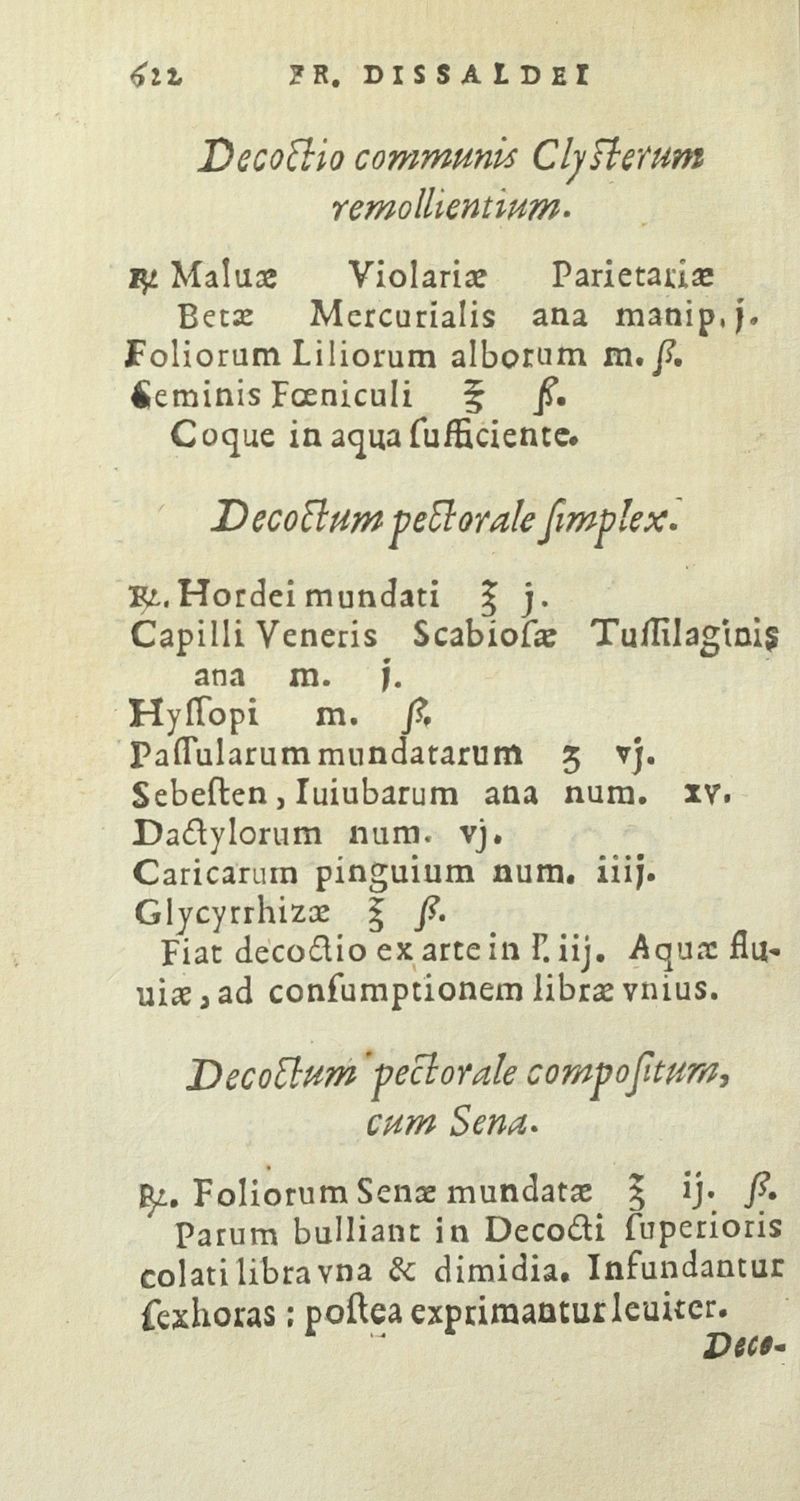 622 FR. DISSALDEI
Decoctio communis Clyſterum
remollientium.
℞ Maluæ Violariæ Parietariæ
Betæ Mercurialis ana manip. j.
Foliorum Liliorum alborum m. ß.
Seminis Fœniculi ℥ ß.
Coque in aqua ſufficiente.
Decoctum pectorale ſimplex.
℞. Hordei mundati ℥ j.
Capilli Veneris Scabioſæ Tuſſilaginis
ana m. j.
Hyſſopi m. ß.
Paſſularum mundatarum ʒ vj.
Sebeſten, Iuiubarum ana num. xv.
Dactylorum num. vj.
Caricarum pinguium num. iiij.
Glycyrrhizæ ℥ ß.
Fiat decoctio ex arte in
iij. Aquæ flu-
uiæ, ad conſumptionem libræ vnius.
Decoctum pectorale compoſitum,
cum Sena.
℞. Foliorum Senæ mundatæ ℥ ij. ß.
Parum bulliant in Decocti ſuperioris
colati libra vna & dimidia. Infundantur
ſex horas : poſtea exprimantur leuiter.
Deco-